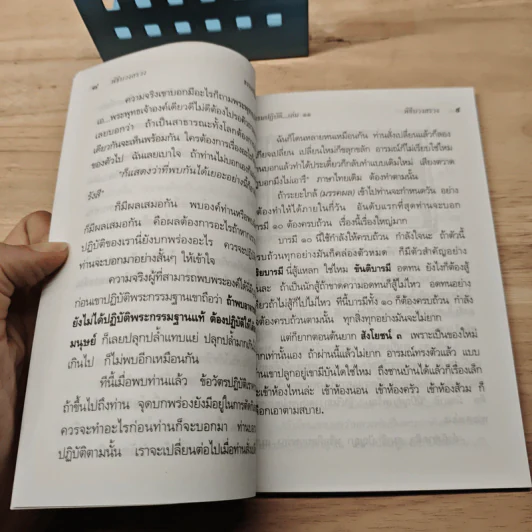 ๘ พิธีบวงสรวง
ความจริงเขาบอกมีอะไรก็ถามพระพุทธ
เอ...พระพุทธเจ้าองค์เดียวดีไม่ดีต้องไปรอคิว
เลยบอกว่า ถ้าเป็นสาธารณะทั้งโลกต้อง
เดียวกันจะเห็นพร้อมกัน ใครต้องการเรื่องอะไร
ของตัวไป ฉันเลยเบาใจ ถ้าท่านไม่บอก
"ก็แสดงว่าที่พบกันได้เยอะอย่างนี้
รังสี"
ก็มีผลเสมอกัน พบองค์ท่านหรือพบ
ก็มีผลเสมอกัน คือผลต้องการอะไรถ้าหาก
ปฏิบัติของเรานี่ยังบกพร่องอะไร ควรจะปฏิบัติ
ท่านจะบอกมาอย่างสั้นๆ ให้เข้าใจ
ความจริงผู้ที่สามารถพบพระองค์ได้
ก่อนเขาปฏิบัติพระกรรมฐานเขาถือว่า ถ้าพบ
ยังไม่ได้ปฏิบัติพระกรรมฐานแท้ ต้องปฏิบัติให้
มนุษย์ ก็เลยปลุกปล้ำแทบแย่ ปลุกปล้ำมาก
เกินไป ก็ไม่พบอีกเหมือนกัน
ทีนี้เมื่อพบท่านแล้ว ข้อวัตรปฏิบัติ
ถ้าขึ้นไปถึงท่าน จุดบกพร่องยังมีอยู่ในการตัด
ควรจะทำอะไรก่อนท่านก็จะบอกมา ท่าน
ปฏิบัติตามนั้น เราจะเปลี่ยนต่อไปเมื่อท่านสั่ง
ปฏิบัติ...เล่ม ๑๑ พิธีบวงสรวง ๙
ฉันก็โดนหลายหนเหมือนกัน ท่านสั่งเปลี่ยนแล้วก็ลอง
เปลี่ยน เปลี่ยนใหม่ก็ขลุกขลัก อารมณ์ก็ไม่เรียบใช่ไหม
แล้วก็ทำได้ประเดี๋ยวก็กลับทำแบบเดิมใหม่ เสียงตวาด
บอกมึงไม่เอารึ" ภาษาไทยเดิม ต้องทำตามนั้น
ถ้าระยะใกล้ (มรรคผล) เข้าไปท่านจะกำหนดวัน อย่าง
ต้องทำให้ได้ภายในกี่วัน อันดับแรกที่สุดท่านจะบอก
บารมี ๑๐ ต้องครบถ้วน เรื่องนี้เรื่องใหญ่มาก
บารมี ๑๐ นี่ใช้กำลังให้ครบถ้วน กำลังใจนะ ถ้าตัวนี้
ครบถ้วนทุกอย่างมันก็คล่องตัวหมด ก็มีตัวสำคัญอย่าง
บารมี นี่สู้แหลก ใช่ไหม ขันติบารมี อดทน ยังไงก็ต้องสู้
ละ ถ้าเป็นนักสู้ถ้าขาดความอดทนก็สู้ไม่ไหว อดทนอย่าง
เดียวถ้าไม่สู้ก็ไปไม่ไหว ทีนี้บารมีทั้ง ๑๐ ก็ต้องครบถ้วน กำลัง
ต้องครบถ้วนตามนั้น ทุกสิ่งทุกอย่างมันจะไม่ยาก
แต่ก็ยากตอนต้นยาก สังโยชน์ ๓ เพราะเป็นของใหม่
เท่านั้นเอง ถ้าผ่านนี้แล้วไม่ยาก อารมณ์ทรงตัวแล้ว แบบ
บ้านเขาปลูกอยู่เขามีบันไดใช่ไหม ถึงชานบ้านได้แล้วก็เรื่องเล็ก
จะเข้าห้องไหนล่ะ เข้าห้องนอน เข้าห้องครัว เข้าห้องส้วม ก็
เลือกเอาตามสบาย.